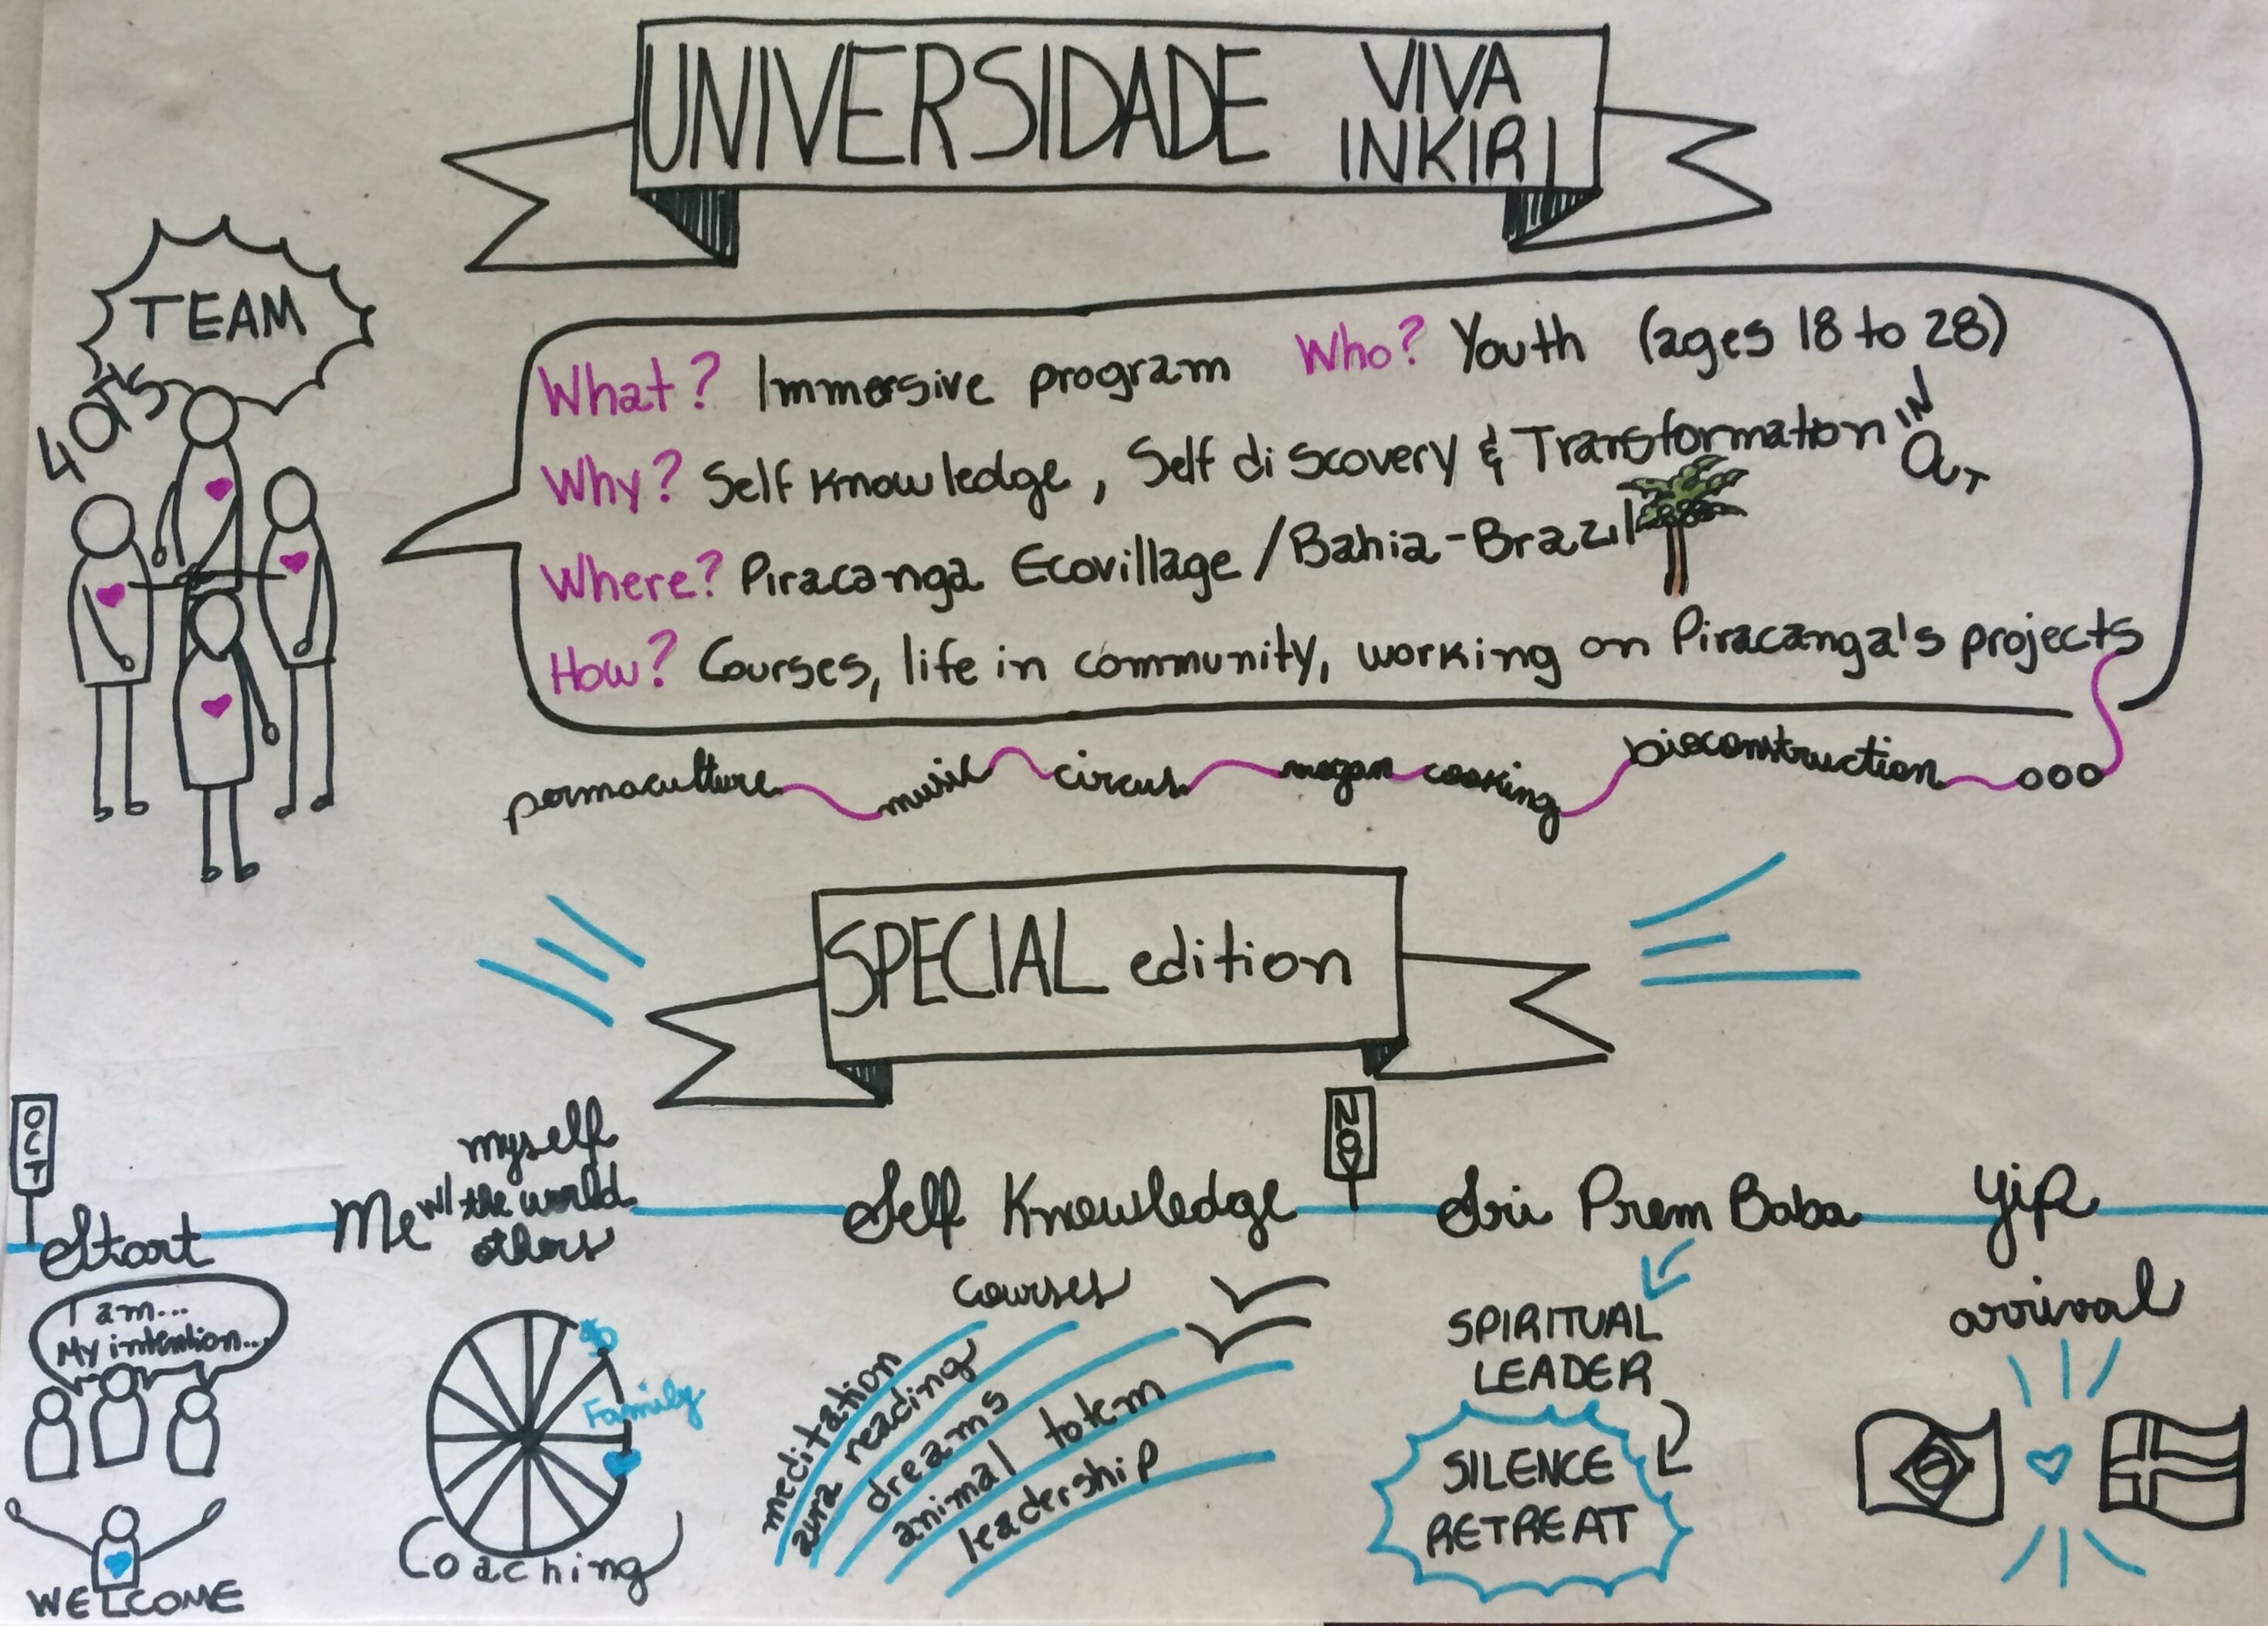 UNIVERSIDADE VIVA INKIRI
TEAM
What? Immersive program Who? Youth (ages 18 to 28)
Why? Self Knowledge, Self discovery & Transformation IN
Where? Piracanga Ecovillage / Bahia-Brazil
How? Courses, life in community, working on Piracanga's projects
permaculture music circus vegan cooking bioconstruction ooo
SPECIAL edition
OCT
NOV
Start
Me w/ myself
the world
others
Self Knowledge
Sri Prem Baba
Yip
arrival
I am...
My intention...
WELCOME
$
Family
Coaching
courses
meditation
aura reading
dreams
animal totem
leadership
SPIRITUAL
LEADER
SILENCE
RETREAT